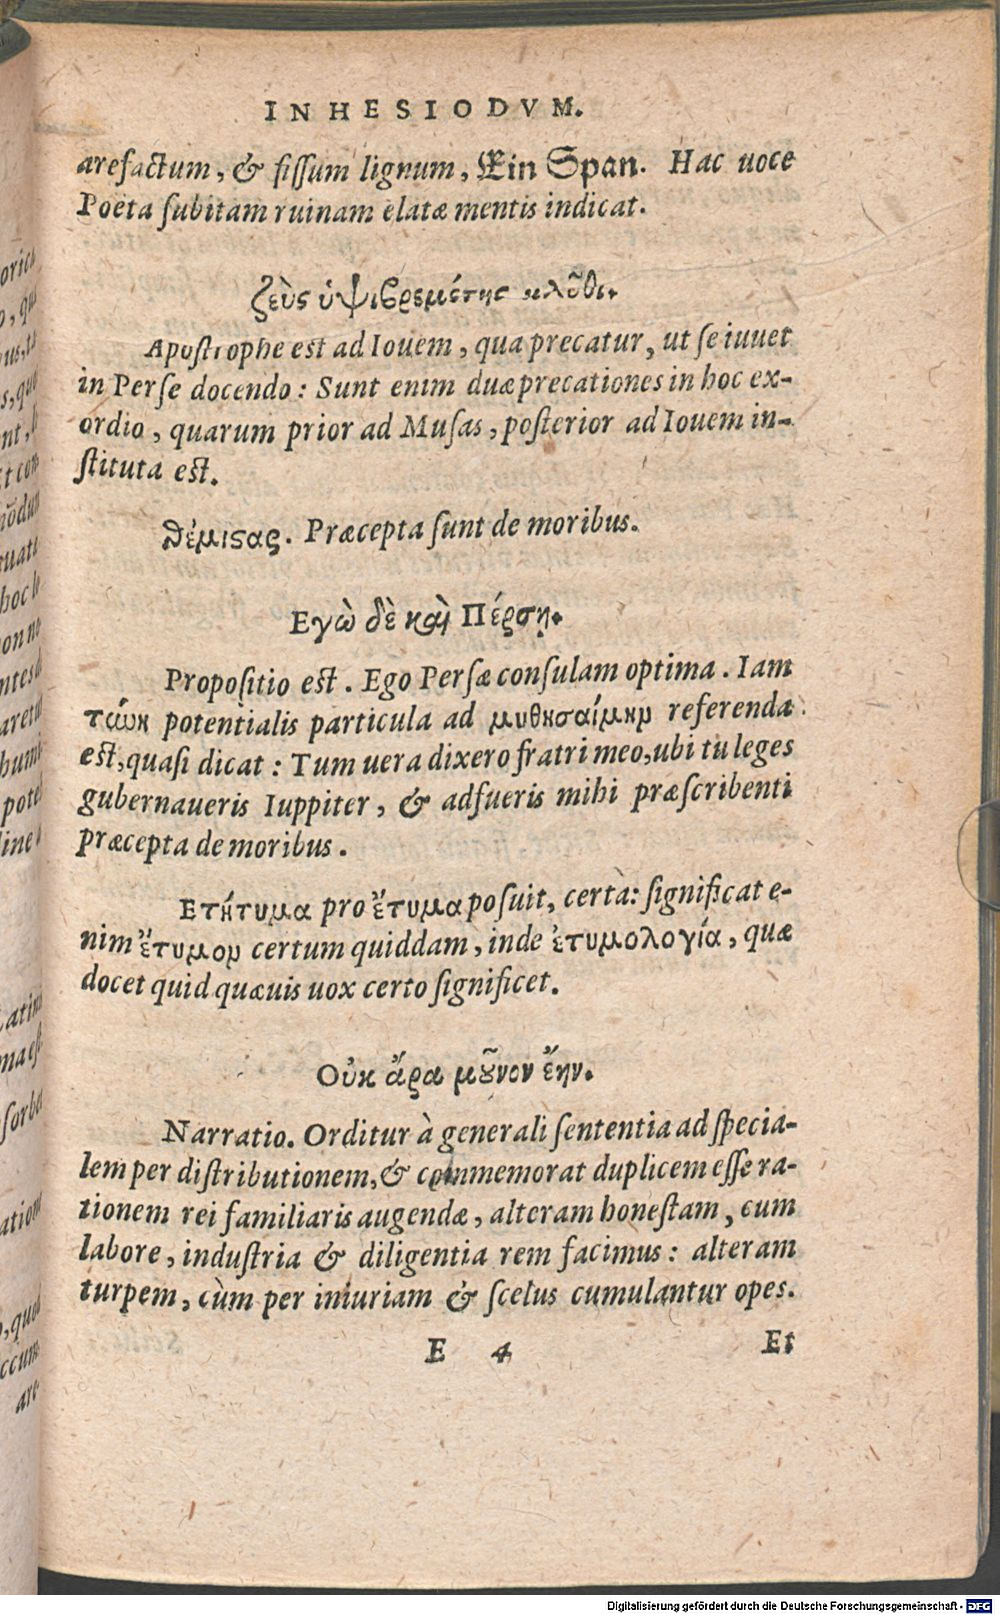 IN HESIODVM.
arefactum, & fissum lignum, Ein Span. Hac uoce
Poëta subitam ruinam elatæ mentis indicat.
ζεὺς ὑψιβρεμέτης κλῦθι.
Apostrophe est ad Iouem, qua precatur, ut se iuuet
in Perse docendo: Sunt enim duæ precationes in hoc ex-
ordio, quarum prior ad Musas, posterior ad Iouem in-
stituta est.
θέμιϛας. Præcepta sunt de moribus.
Εγὼ δὲ καὶ Πέρσῃ.
Propositio est. Ego Persæ consulam optima. Iam
τώνη potentialis particula ad μυθησαίμην referenda
est, quasi dicat: Tum uera dixero fratri meo, ubi tu leges
gubernaueris Iuppiter, & adfueris mihi præscribenti
præcepta de moribus.
Ετήτυμα pro ἔτυμα posuit, certa: significat e-
nim ἔτυμον certum quiddam, inde ἐτυμολογία, quæ
docet quid quæuis uox certo significet.
Οὐκ ἄρα μοῦνον ἔην.
Narratio. Orditur à generali sententia ad specia-
lem per distributionem, & commemorat duplicem esse ra-
tionem rei familiaris augendæ, alteram honestam, cum
labore, industria & diligentia rem facimus: alteram
turpem, cùm per iniuriam & scelus cumulantur opes.
E 4 Et
Digitalisierung gefördert durch die Deutsche Forschungsgemeinschaft - DFG